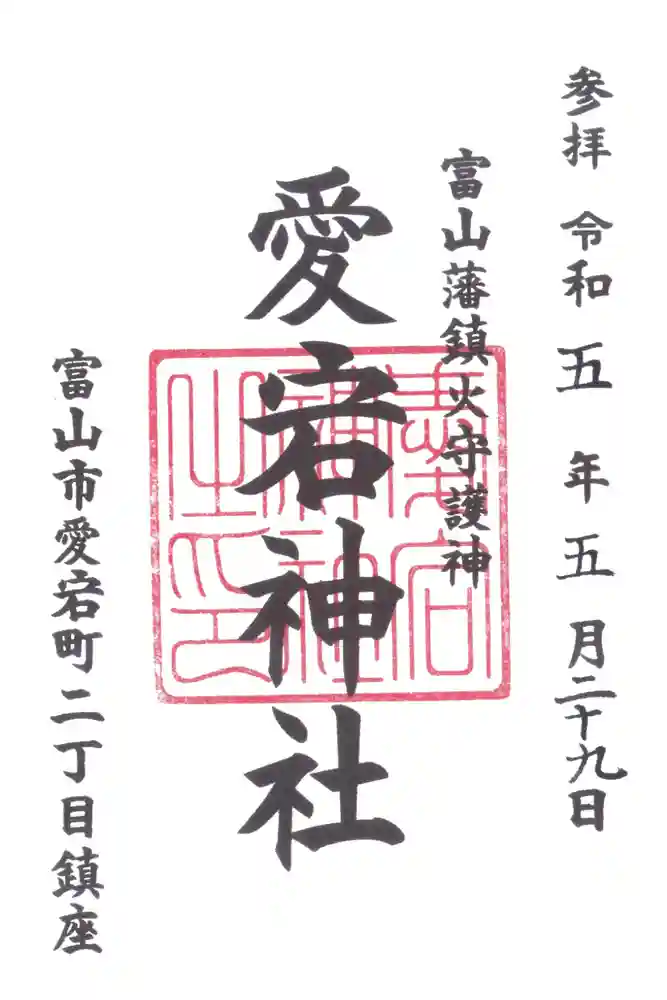 参拝 令和五年五月二十九日
富山藩鎮火守護神
愛宕神社
愛宕神社之印
富山市愛宕町二丁目鎮座